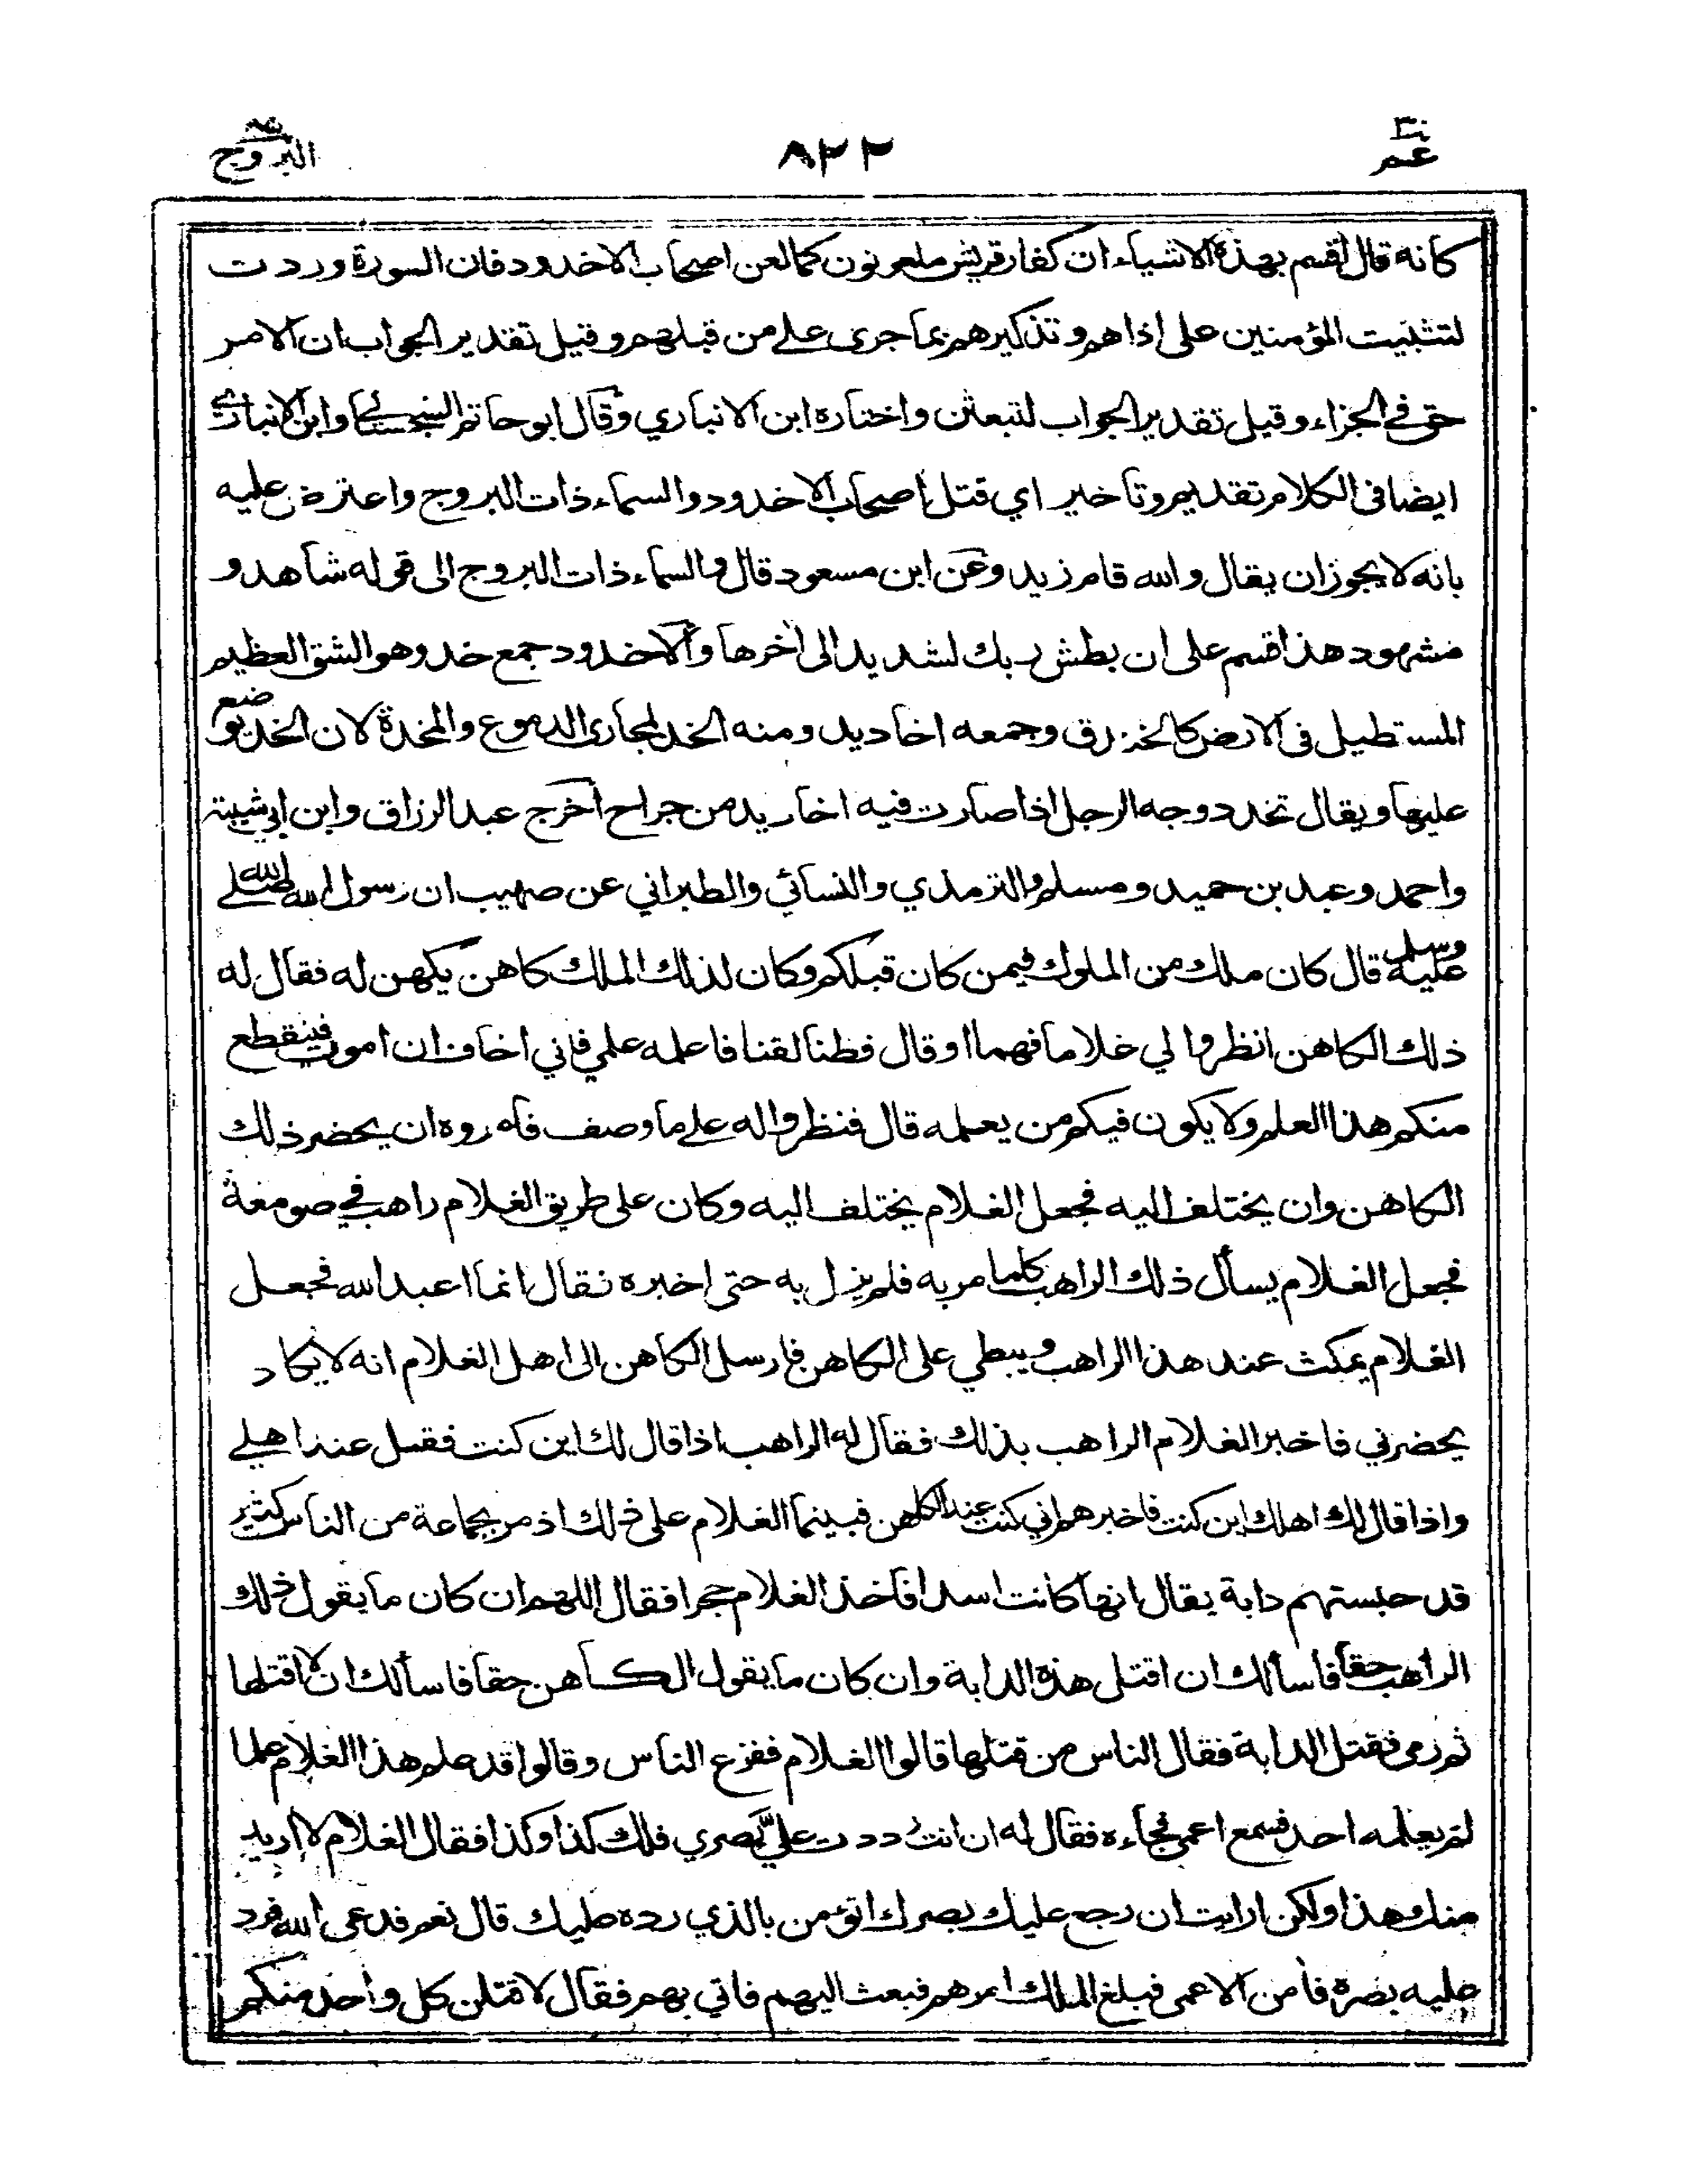 عم ٣٠
٨٢٢
البروج ٨٥
كانه قال اقسم بهذه الاشياء ان كفار قريش ملعونون كما لعن اصحاب الاخدود فان السورة وردت
لتثبيت المؤمنين على اذاهم وتذكيرهم بما جرى على من قبلهم وقيل تقدير الجواب ان الامر
حق في الجزاء وقيل تقدير الجواب لتبعثن واختاره ابن الانباري وقال ابو حاتم السجستاني وابن الانباري
ايضا في الكلام تقديم وتاخير اي قتل اصحاب الاخدود والسماء ذات البروج واعترض عليه
بانه لا يجوز ان يقال والله قام زيد وعن ابن مسعود قال والسماء ذات البروج الى قوله شاهد و
مشهود هذا قسم على ان بطش ربك لشديد الى اخرها والاخدود جمع خد وهو الشق العظيم
المستطيل في الارض كالخندق وجمعه اخاديد ومنه الخد لمجارى الدموع والمخدة لان الخد يوضع
عليها ويقال تخدد وجه الرجل اذا صارت فيه اخاديد من جراح اخرج عبد الرزاق وابن ابي شيبة
واحمد وعبد بن حميد ومسلم والترمذي والنسائي والطبراني عن صهيب ان رسول الله صلى الله
عليه وسلم قال كان ملك من الملوك فيمن كان قبلكم وكان لذلك الملك كاهن يكهن له فقال له
ذلك الكاهن انظروا لي غلاما فهما او قال فطنا لقنا فاعلمه علمي فاني اخاف ان اموت فينقطع
منكم هذا العلم ولا يكون فيكم من يعلمه قال فنظروا له على ما وصف فامروه ان يحضر ذلك
الكاهن وان يختلف اليه فجعل الغلام يختلف اليه وكان على طريق الغلام راهب في صومعة
فجعل الغلام يسأل ذلك الراهب كلما مر به فلم يزل به حتى اخبره فقال انما اعبد الله فجعل
الغلام يمكث عند هذا الراهب ويبطي على الكاهن فارسل الكاهن الى اهل الغلام انه لا يكاد
يحضرني فاخبر الغلام الراهب بذلك فقال له الراهب اذا قال لك اين كنت فقل عند اهلي
واذا قال لك اهلك اين كنت فاخبرهم اني كنت عند الكاهن فبينما الغلام على ذلك اذ مر بجماعة من الناس كثير
قد حبستهم دابة يقال انها كانت اسدا فاخذ الغلام حجرا فقال اللهم ان كان ما يقول ذلك
الراهب حقا فاسألك ان اقتل هذه الدابة وان كان ما يقول الكاهن حقا فاسألك ان لا اقتلها
ثم رمى فقتل الدابة فقال الناس من قتلها قالوا الغلام ففزع الناس وقالوا قد علم هذا الغلام علما
لم يعلمه احد فسمع اعمى فجاءه فقال له ان انت رددت علي بصري فلك كذا وكذا فقال الغلام لا اريد
منك هذا ولكن ارايت ان رجع عليك بصرك اتؤمن بالذي رده عليك قال نعم فدعى الله فرد
عليه بصره فأمن الاعمى فبلغ الملك امرهم فبعث اليهم فاتي بهم فقال لاقتلن كل واحد منكم